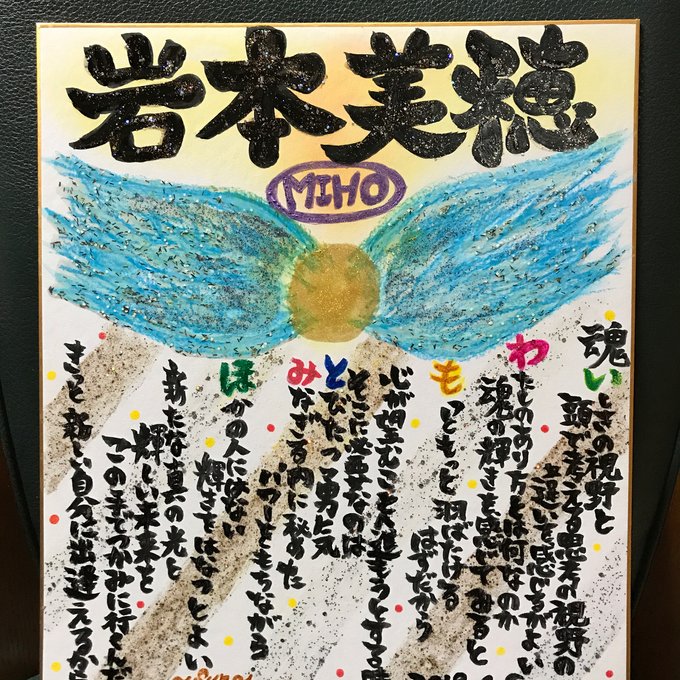 岩本美穂
MIHO
魂いしきの視野と
頭で考える思考の視野の
違いを感じるがよい
わたしのあり方とは何なのか
魂の輝きを感じてみると
もっともっと羽ばたける
はずだから
心が望むことへ進もうとする時
そこに必要なのは
とびたつ勇気
みなぎる内に秘めた
パワーをもちながら
ほかの人にはない
輝きをはなつとよい
新たな真の光と
輝しい未来を
この手でつかみに行くんだ
きっと新しい自分に出逢えるから